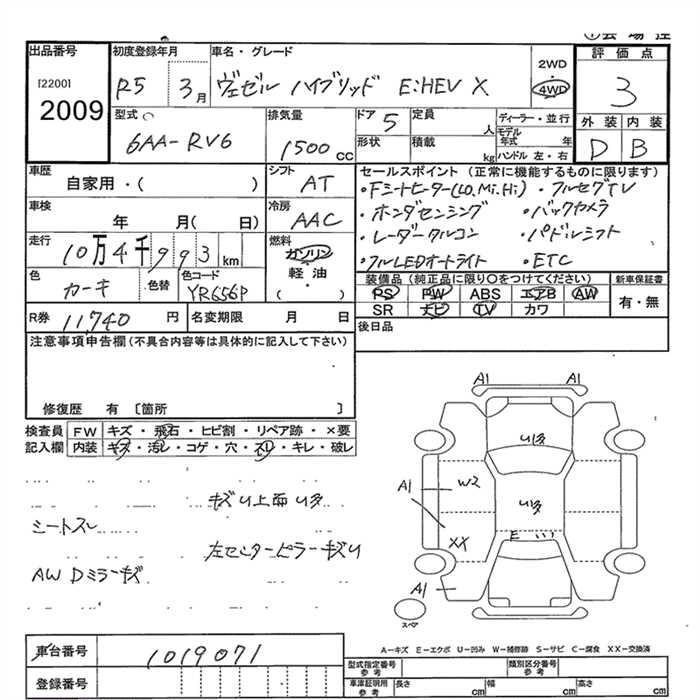 出品番号 初度登録年月 車名・グレード 評価点
[2200] R5 3月 ヴェゼル ハイブリッド E:HEV X 2WD 4WD 3
2009
型式 排気量 ドア 5 定員 人 ディーラー・並行 外装 内装
6AA-RV6 1500cc 形状 積載 kg モデル年式 年 D B
ハンドル 左・右
車歴 シフト セールスポイント (正常に機能するものに限ります)
自家用・( ) AT ・Fシートヒーター(LO.Mi.Hi) ・フルセグTV
車検 冷房 ・ホンダセンシング ・バックカメラ
年 月( 日) AAC ・レーダークルコン ・パドルシフト
走行 燃料 ・フルLEDオートライト ・ETC
10万4千993km ガソリン
色 色替 色コード 軽油 装備品(純正品に限り○をつけてください) 新車保証書
カーキ YR656P ( ) PS PW ABS エアB AW 有・無
R券 11,740円 名変期限 月 日 SR ナビ TV カワ
後日品
注意事項申告欄(不具合内容等は具体的に記入して下さい)
修復歴 有 〔箇所 〕
検査員 FW キズ・飛石・ヒビ割・リペア跡・×要
記入欄 内装 キズ・汚レ・コゲ・穴・スレ・キレ・破レ
A1 A1
U1多
A1 W2
U1多
E
XX
A1
スペア
キズU上面U多
シートスレ
左センターピラーキズU
AW Dミラーキズ
A-キズ E-エクボ U-凹み W-補修跡 S-サビ C-腐食 XX-交換済
車台番号 1019071
型式指定番号 参考 類別区分番号 参考
登録番号 車庫証明用 参考 長さ cm 幅 cm 高さ cm